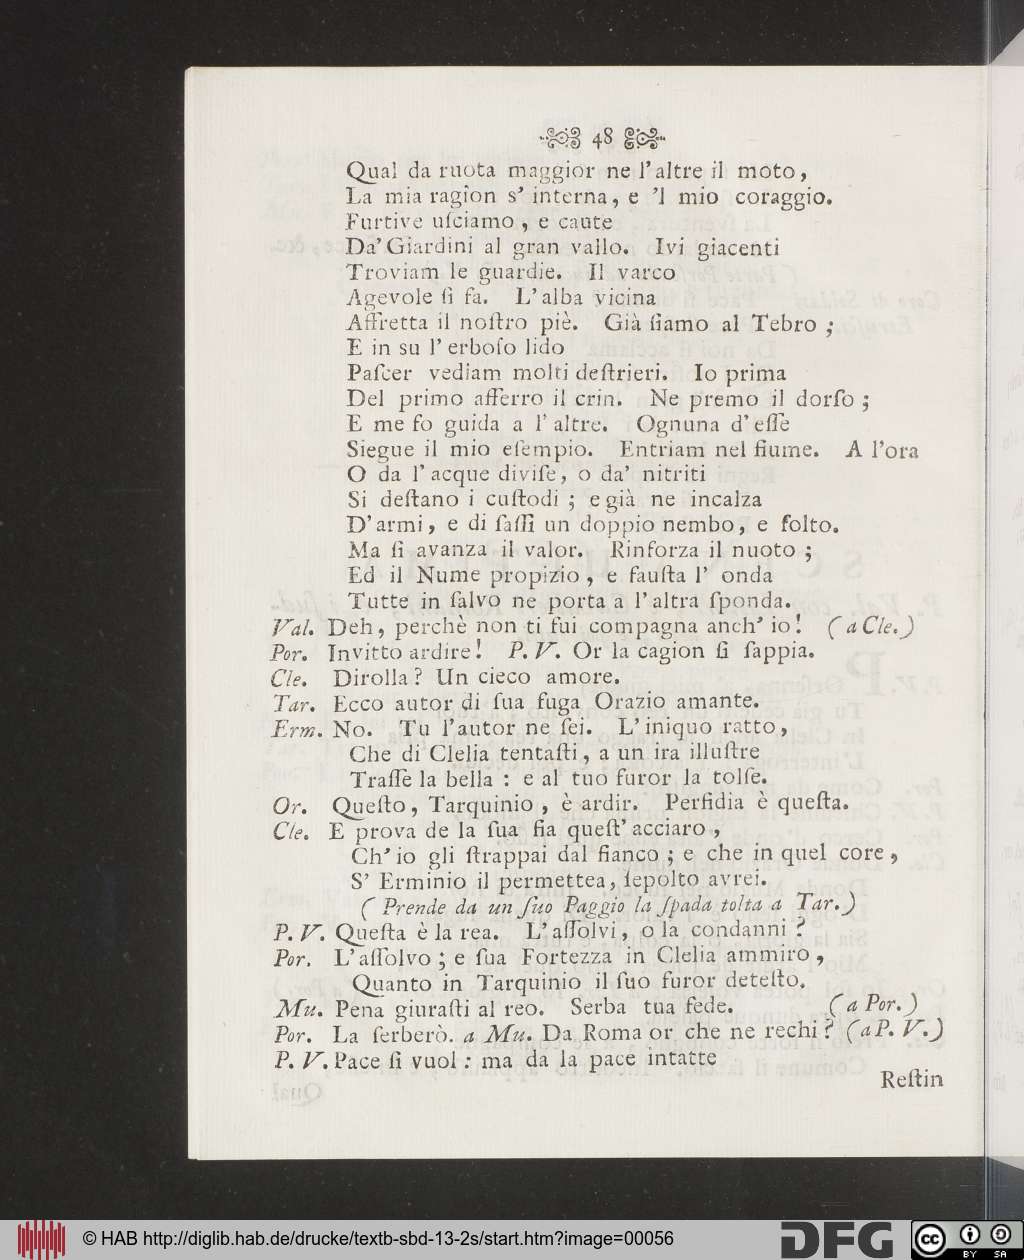 48
Qual da ruota maggior ne l'altre il moto,
La mia ragion s' interna, e 'l mio coraggio.
Furtive uſciamo, e caute
Da' Giardini al gran vallo. Ivi giacenti
Troviam le guardie. Il varco
Agevole ſi fa. L'alba vicina
Affretta il noſtro piè. Già ſiamo al Tebro;
E in su l'erboſo lido
Paſcer vediam molti deſtrieri. Io prima
Del primo afferro il crin. Ne premo il dorſo;
E me fo guida a l'altre. Ognuna d'eſſe
Siegue il mio eſempio. Entriam nel fiume. A l'ora
O da l'acque diviſe, o da' nitriti
Si deſtano i cuſtodi; e già ne incalza
D'armi, e di ſaſſi un doppio nembo, e folto.
Ma ſi avanza il valor. Rinforza il nuoto;
Ed il Nume propizio, e fauſta l'onda
Tutte in ſalvo ne porta a l'altra ſponda.
Val. Deh, perchè non ti fui compagna anch'io! (a Cle.)
Por. Invitto ardire! P. V. Or la cagion ſi ſappia.
Cle. Dirolla? Un cieco amore.
Tar. Ecco autor di ſua fuga Orazio amante.
Erm. No. Tu l'autor ne ſei. L'iniquo ratto,
Che di Clelia tentaſti, a un ira illuſtre
Traſſe la bella: e al tuo furor la tolſe.
Or. Queſto, Tarquinio, è ardir. Perfidia è queſta.
Cle. E prova de la ſua fia queſt'acciaro,
Ch'io gli ſtrappai dal fianco; e che in quel core,
S' Erminio il permettea, ſepolto avrei.
(Prende da un ſuo Paggio la ſpada tolta a Tar.)
P. V. Queſta è la rea. L'aſſolvi, o la condanni?
Por. L'aſſolvo; e ſua Fortezza in Clelia ammiro,
Quanto in Tarquinio il ſuo furor deteſto.
Mu. Pena giuraſti al reo. Serba tua fede. (a Por.)
Por. La ſerberò. a Mu. Da Roma or che ne rechi? (a P. V.)
P. V. Pace ſi vuol: ma da la pace intatte
Reſtin
© HAB http://diglib.hab.de/drucke/textb-sbd-13-2s/start.htm?image=00056
DFG
cc BY SA